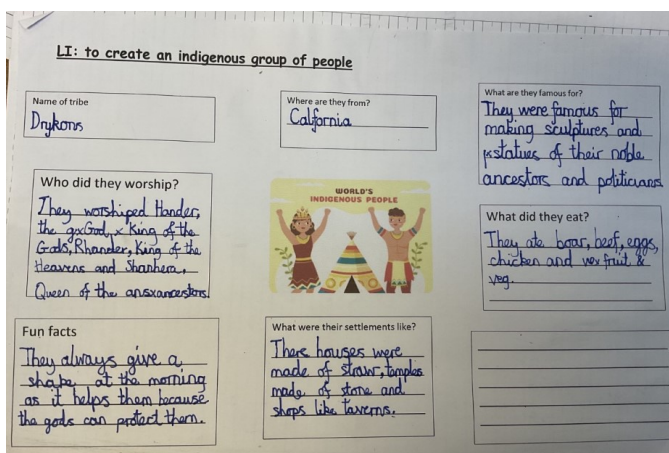 LI: to create an indigenous group of people
Name of tribe
Drykons
Where are they from?
California
What are they famous for?
They were famous for
making sculptures and
statues of their noble
ancestors and politicians
Who did they worship?
They worshiped Hander,
the God, King of the
Gods, Rhander, King of the
Heavens and Shanhera,
Queen of the ancestors.
WORLD'S
INDIGENOUS PEOPLE
What did they eat?
They ate boar, beef, eggs,
chicken and fruit &
veg.
Fun facts
They always give a
shake at the morning
as it helps them because
the gods can protect them.
What were their settlements like?
There houses were
made of straw, temples
made of stone and
shops like taverns.